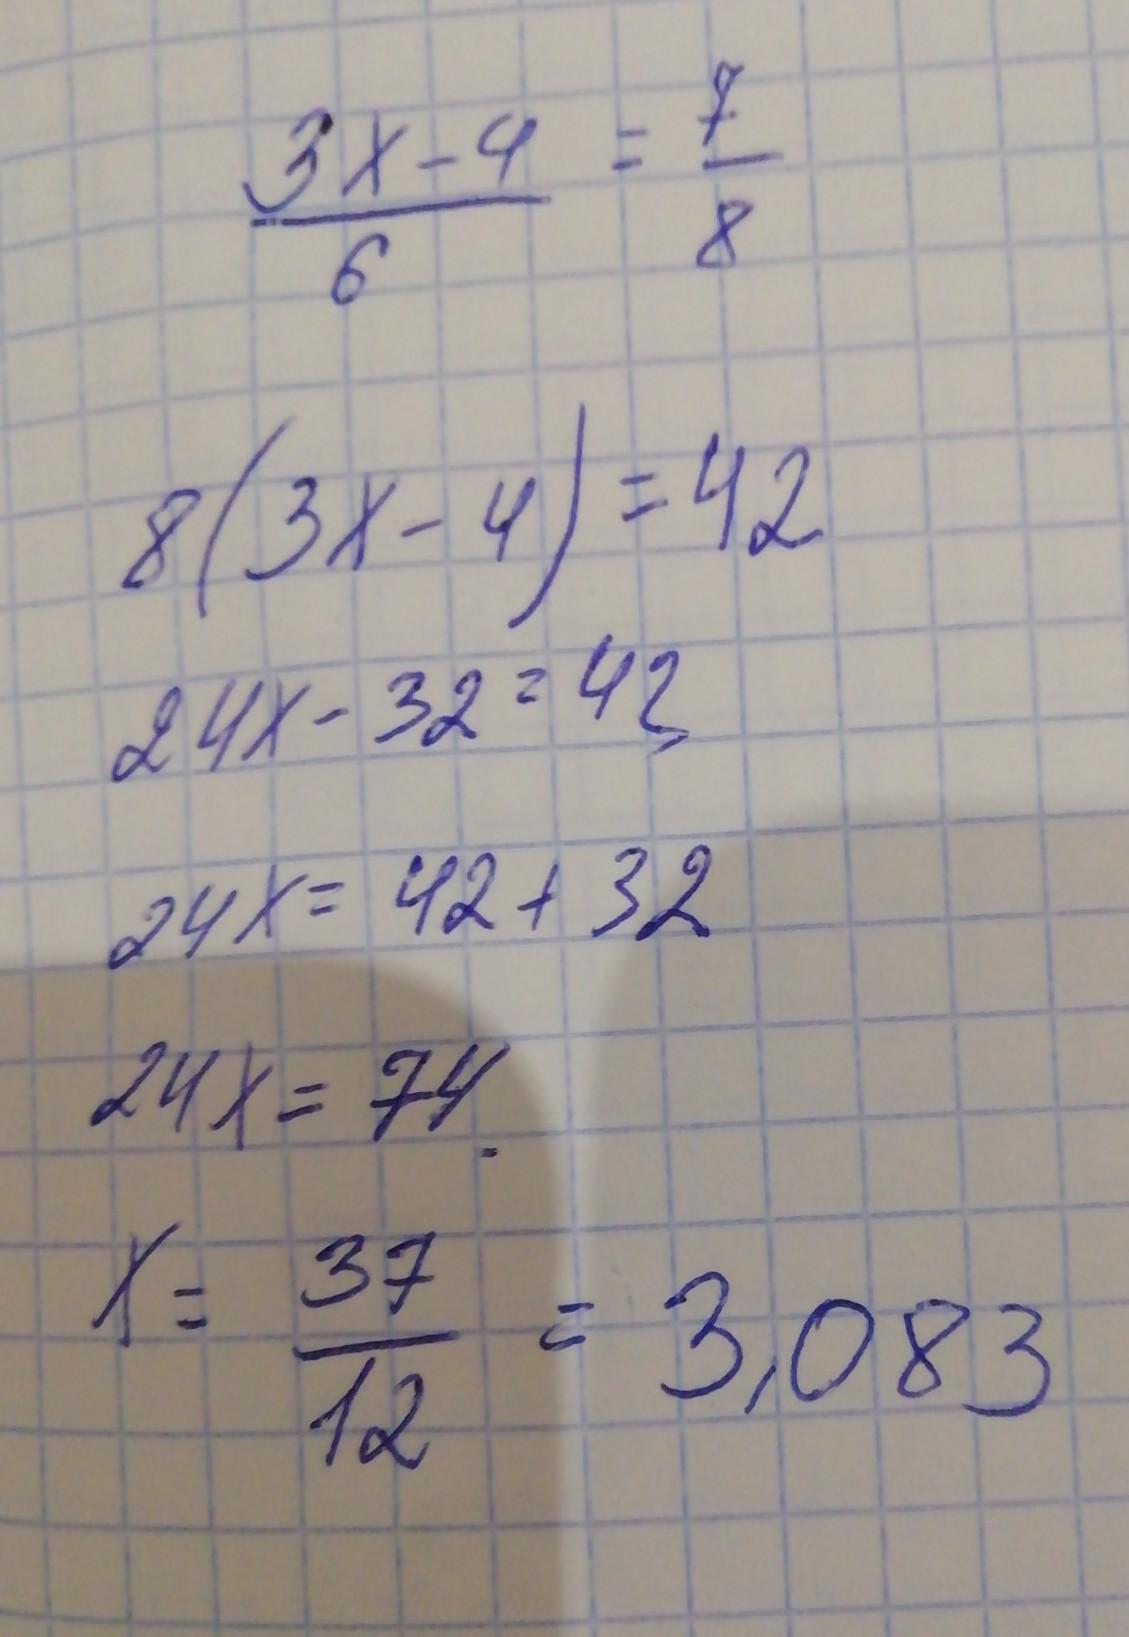 (3x-4)/6 = 7/8
8(3x-4)=42
24x-32=42
24x=42+32
24x=74.
x= 37/12 = 3,083